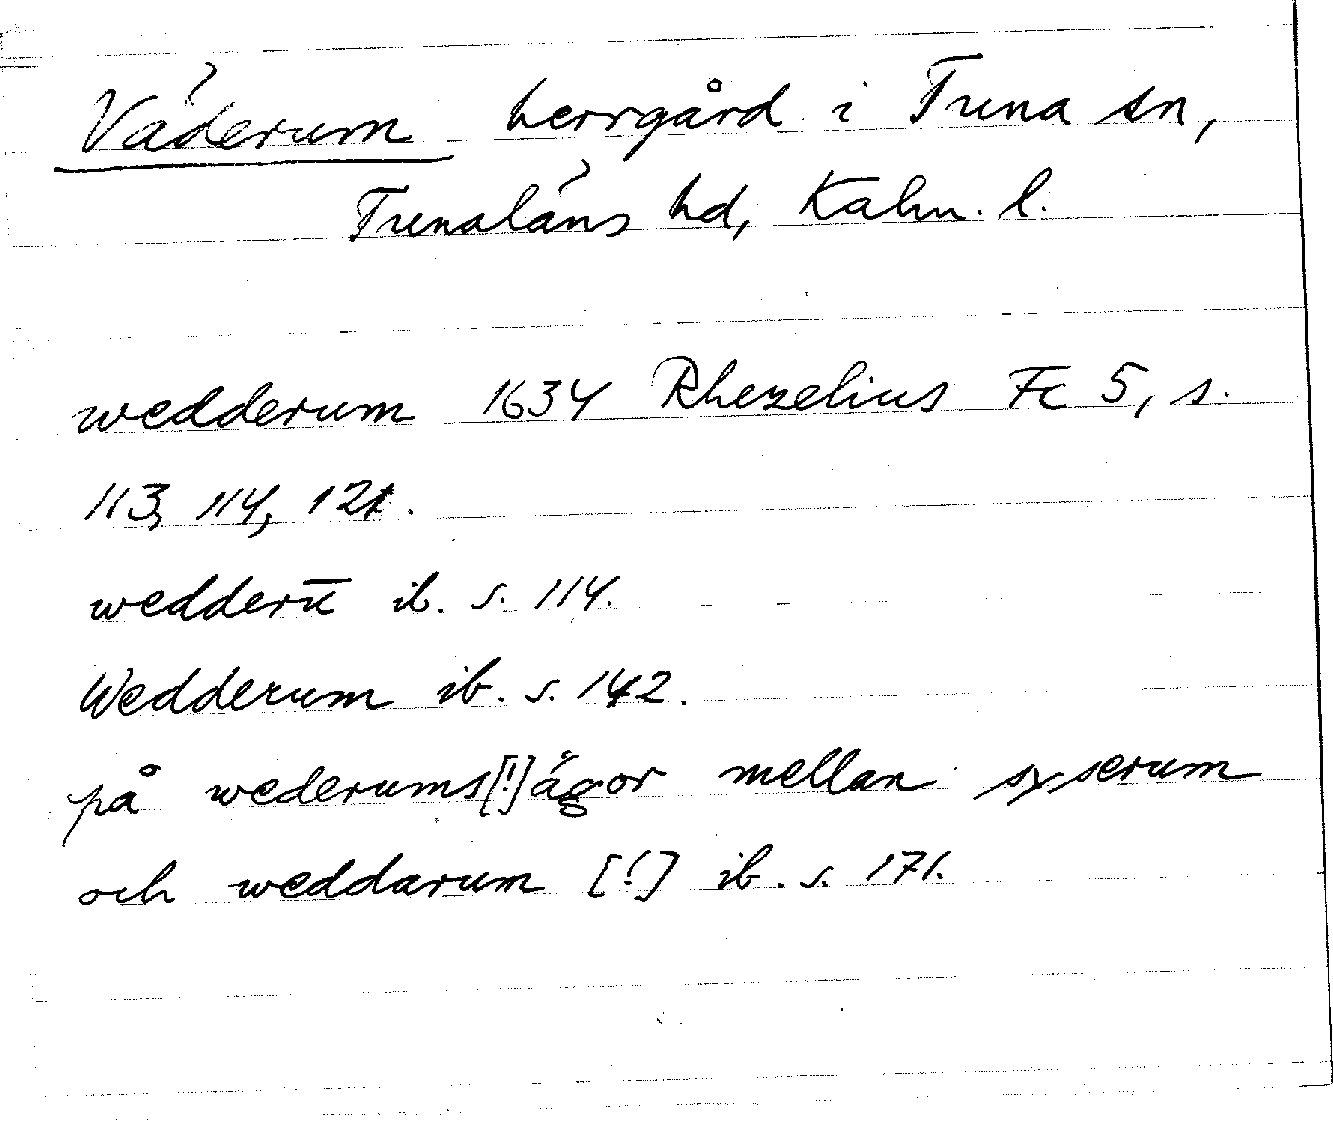 Väderum herrgård i Tuna sn,
Tunaläns hd, Kalm. l.
wedderum 1634 Rhezelius Fc 5, s.
113, 114, 121.
wedderū ib. s. 114.
Wedderum ib. s. 142.
på wederums[!]ägor mellan syserum
och weddarum [!] ib. s. 171.